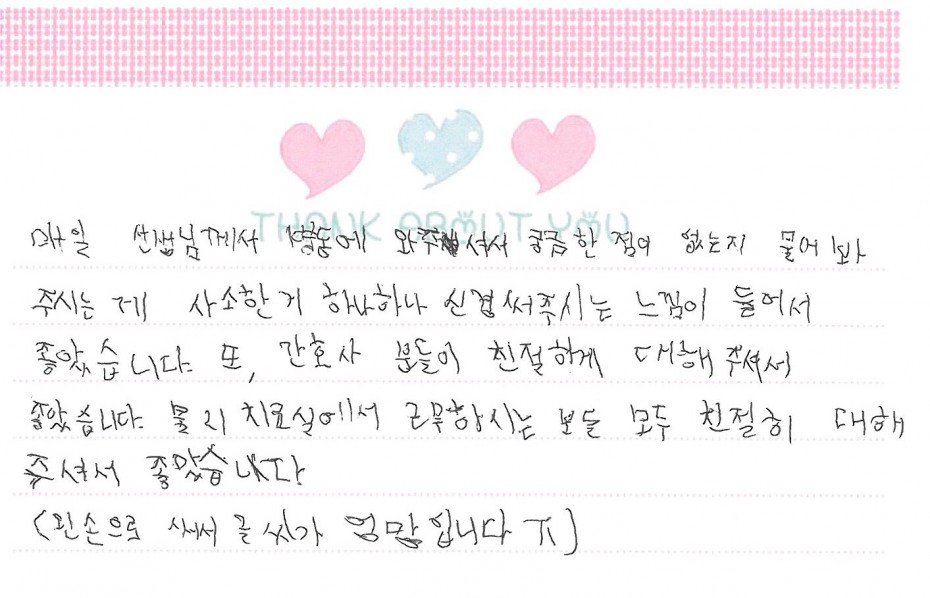 THANK ABOUT YOU
매일 선생님께서 병동에 와주셔서 궁금한 점이 없는지 물어봐
주시는 게 사소한 거 하나하나 신경써주시는 느낌이 들어서
좋았습니다. 또, 간호사 분들이 친절하게 대해 주셔서
좋았습니다. 물리치료실에서 근무하시는 분들 모두 친절히 대해
주셔서 좋았습니다
(왼손으로 써서 글씨가 엉망입니다 ㅠ)